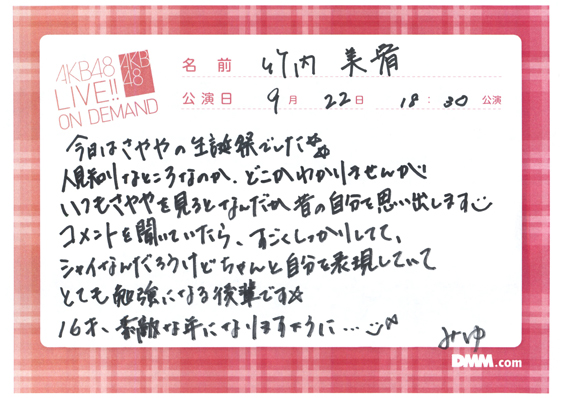 AKB48
LIVE!!
ON DEMAND
AKB
48
名前 竹内 美宥
公演日 9月 22日 18:30 公演
今日はさややの生誕祭でした☆☆
人見知りなところなのか、どこかわかりませんが
いつもさややを見るとなんだか昔の自分を思い出します
コメントを聞いていたら、すごくしっかりしてて、
シャイなんだろうけどちゃんと自分を表現していて
とても勉強になる後輩です☆
16才、素敵な年になりますように…
みゆ
DMM.com